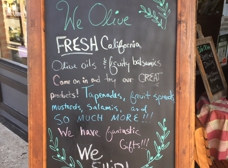 We Olive
FRESH California
Olive oils & fruity balsamics
Come on in and try out GREAT
products! Tapenades, fruit spreads
mustards, Salamis, and
SO MUCH MORE!!!
We have fantastic
Gifts!!!
We